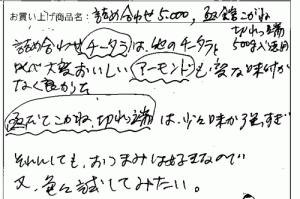 お買い上げ商品名：詰め合わせ5,000, 缶詰こがね
切れっ端
500g入
詰め合わせチータラは、他のチータラと
比べ大変おいしい アーモンドも変な味付が
なく良かった
こがね、切れっ端は、少々味が強すぎ
それにしても、おつまみは好きなので
又、色々試してみたい。